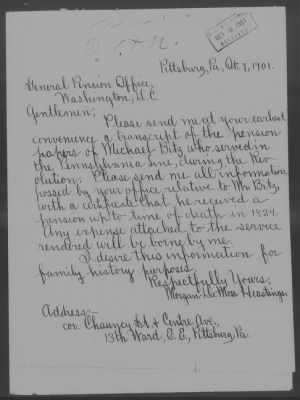 Pittsburg, Pa, Oct. 7, 1901.
General Pension Office,
Washington, D.C.
Gentlemen;
Please send me at your earliest
convenience a transcript of the pension
papers of Michael Bitz who served in
the Pennsylvania Line, during the Rev-
olution. Please send me all information
possed by your office relative to Mr. Bitz,
with a certificate that he received a
pension up to time of death in 1824.
Any expense attached to the service
rendred will be borne by me.
I desire this information for
family history purposes.
Respectfully Yours,
Morgan De Moss Heastings.
Address:-
cor. Chauncy St. & Centre Ave.,
13th Ward, E.E., Pittsburg, Pa.